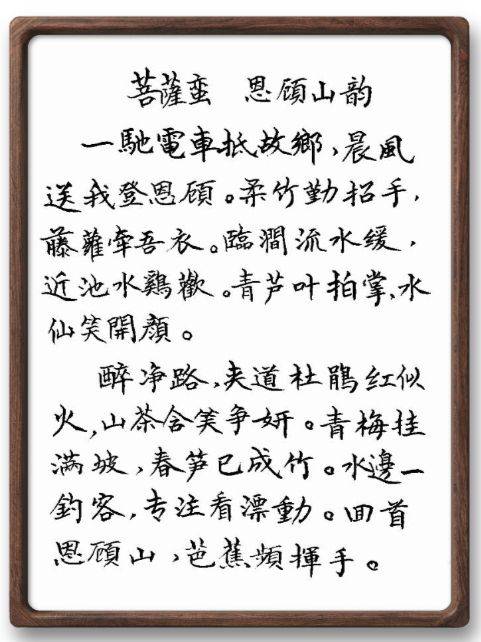 菩薩蛮 恩顧山韵
一馳電車抵故鄉,晨風
送我登恩顧。柔竹勤招手,
藤蘿牽吾衣。臨澗流水缓,
近池水鷄歡。青芦叶拍掌,水
仙笑開顏。
醉净路,夹道杜鵑红似
火,山茶含笑争妍。青梅挂
满坡,春笋已成竹。水邊一
釣客,专注看漂動。回首
恩顧山,芭蕉頻揮手。